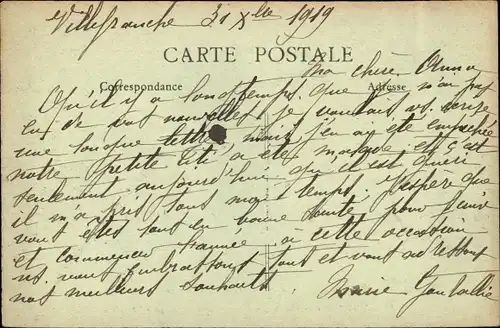 Villefranche 31 Xbre 1919
CARTE POSTALE
Correspondance Adresse
Ma chère
Qu'il y a longtemps que je n'ai pas
eu de vos nouvelles, je voulais vs. écrire
une longue lettre, mais j'en ai été empêchée
notre petite a été malade et c'est
seulement aujourd'hui qu'il est guéri
il m'a pris tout mon temps. J'espère que
vous êtes tous en bonne santé pour finir
et commencer l'année à cette occasion
ns. vous embrassons tous et vous adressons
nos meilleurs souhaits.
Marie